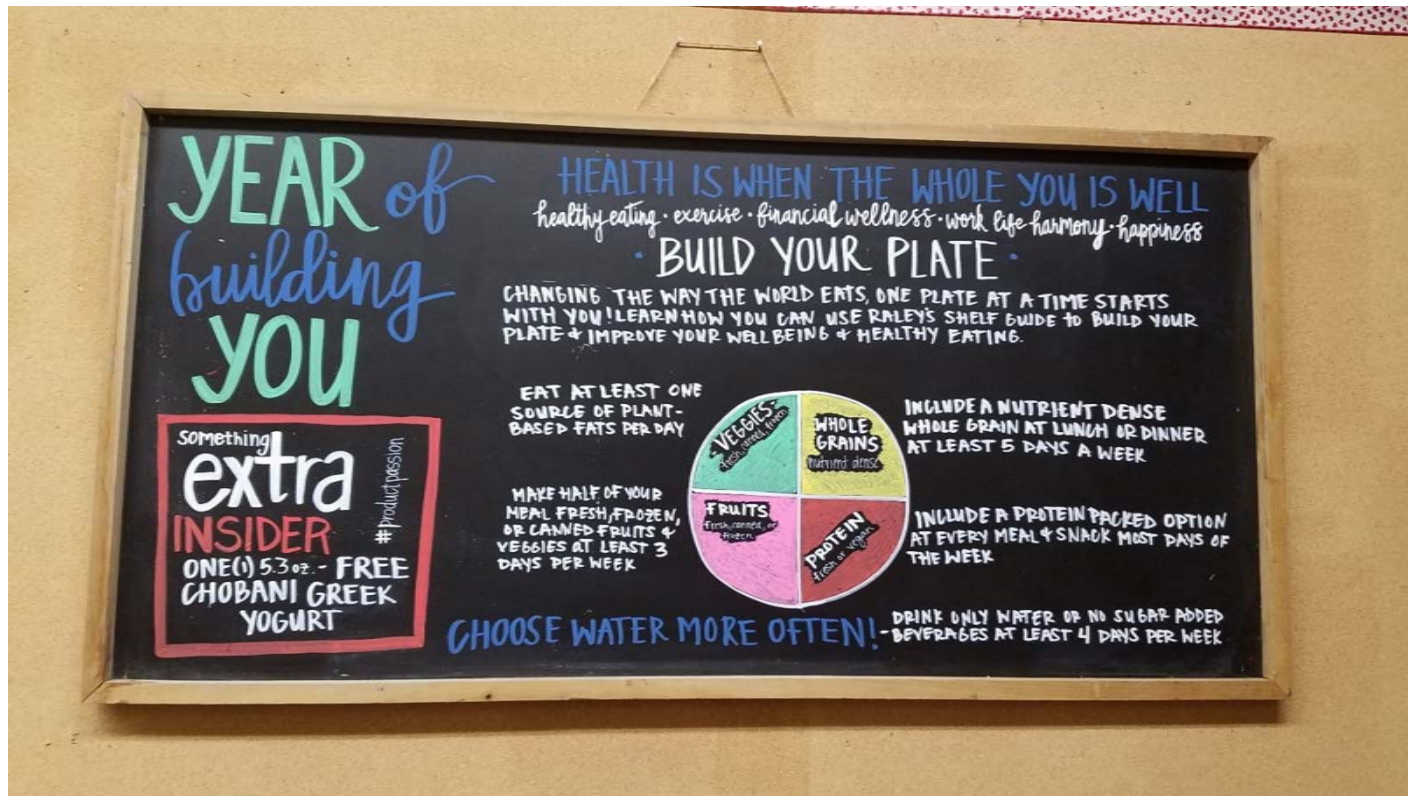 YEAR of
building
YOU
something
extra
INSIDER
#productpassion
ONE(1) 5.3 oz. - FREE
CHOBANI GREEK
YOGURT
HEALTH IS WHEN THE WHOLE YOU IS WELL
healthy eating · exercise · financial wellness · work life harmony · happiness
· BUILD YOUR PLATE ·
CHANGING THE WAY THE WORLD EATS, ONE PLATE AT A TIME STARTS
WITH YOU! LEARN HOW YOU CAN USE RALEY'S SHELF GUIDE TO BUILD YOUR
PLATE & IMPROVE YOUR WELLBEING & HEALTHY EATING.
EAT AT LEAST ONE
SOURCE OF PLANT-
BASED FATS PER DAY
MAKE HALF OF YOUR
MEAL FRESH, FROZEN,
OR CANNED FRUITS &
VEGGIES AT LEAST 3
DAYS PER WEEK
- VEGGIES -
fresh, canned, frozen
WHOLE
GRAINS
nutrient dense
FRUITS
fresh, canned, or
frozen
PROTEIN
fresh or vegan
INCLUDE A NUTRIENT DENSE
WHOLE GRAIN AT LUNCH OR DINNER
AT LEAST 5 DAYS A WEEK
INCLUDE A PROTEIN PACKED OPTION
AT EVERY MEAL & SNACK MOST DAYS OF
THE WEEK
CHOOSE WATER MORE OFTEN!
- DRINK ONLY WATER OR NO SUGAR ADDED
BEVERAGES AT LEAST 4 DAYS PER WEEK